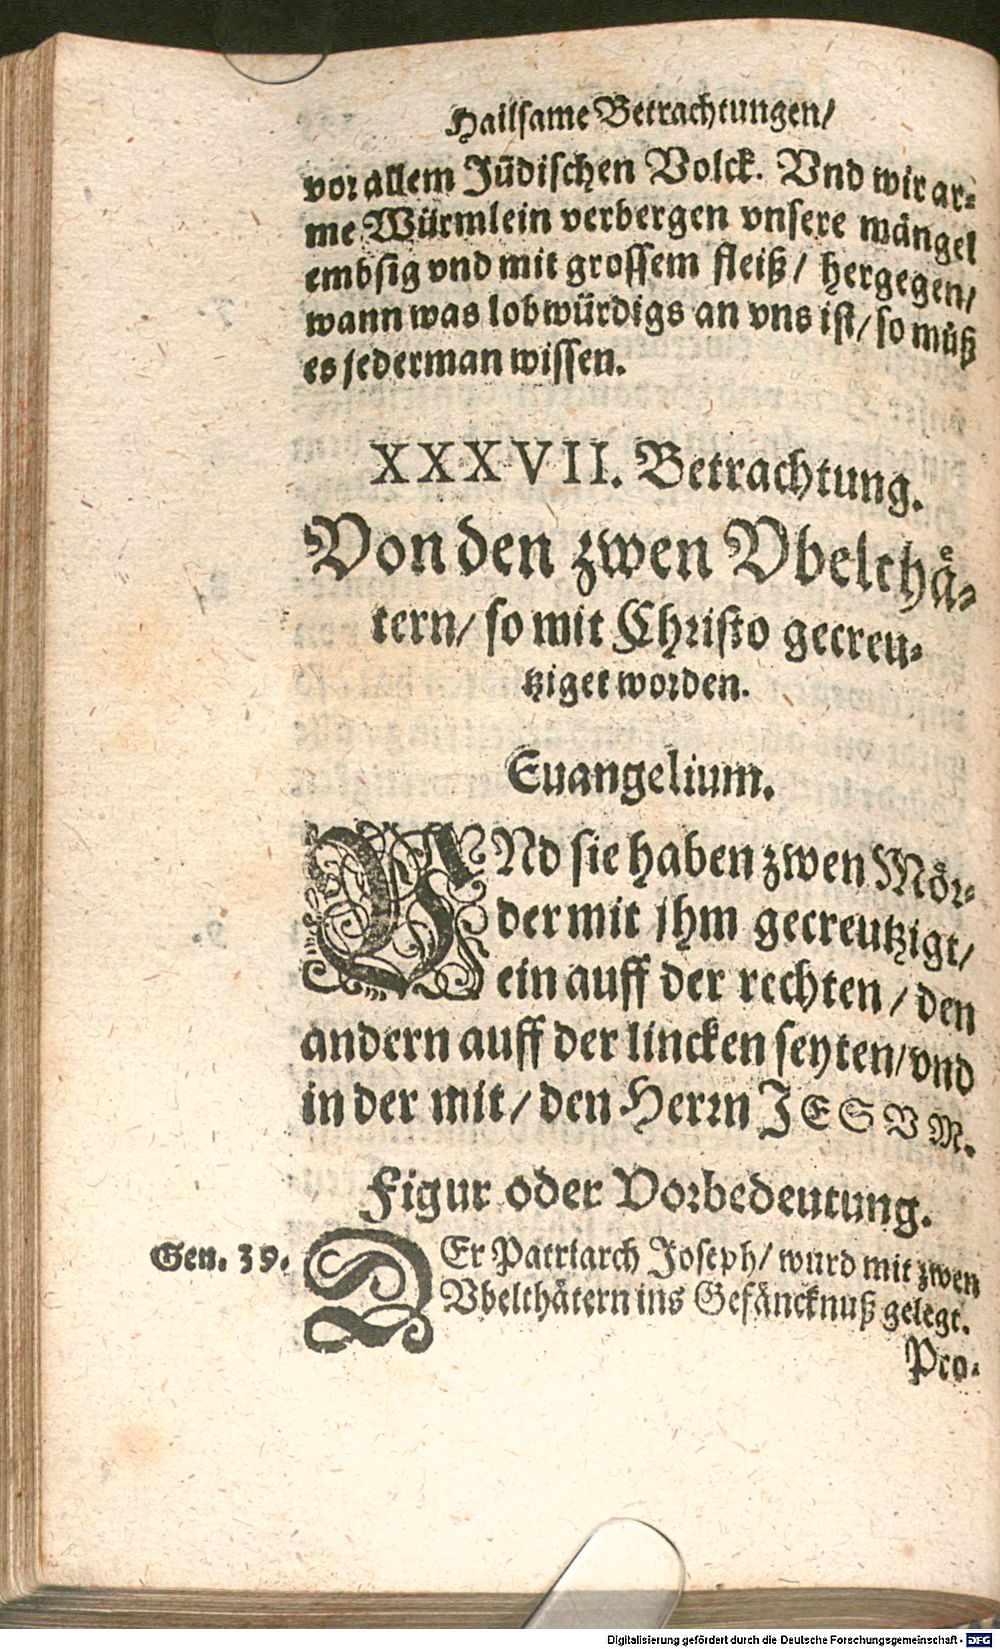 Hailsame Betrachtungen/
vor allem Jüdischen Volck. Vnd wir ar-
me Würmlein verbergen vnsere mängel
embsig vnd mit grossem fleiß/ hergegen/
wann was lobwürdigs an vns ist/ so muß
es jederman wissen.
XXXVII. Betrachtung.
Von den zwen Vbelthä-
tern/ so mit Christo gecreu-
tziget worden.
Euangelium.
VNd sie haben zwen Mör-
der mit jhm gecreutzigt/
ein auff der rechten / den
andern auff der lincken seyten/ vnd
in der mit/ den Herrn JESVM.
Figur oder Vorbedeutung.
Gen. 39. DEr Patriarch Joseph/ wurd mit zwen
Vbelthätern ins Gefäncknuß gelegt.
Pro-
Digitalisierung gefördert durch die Deutsche Forschungsgemeinschaft - DFG